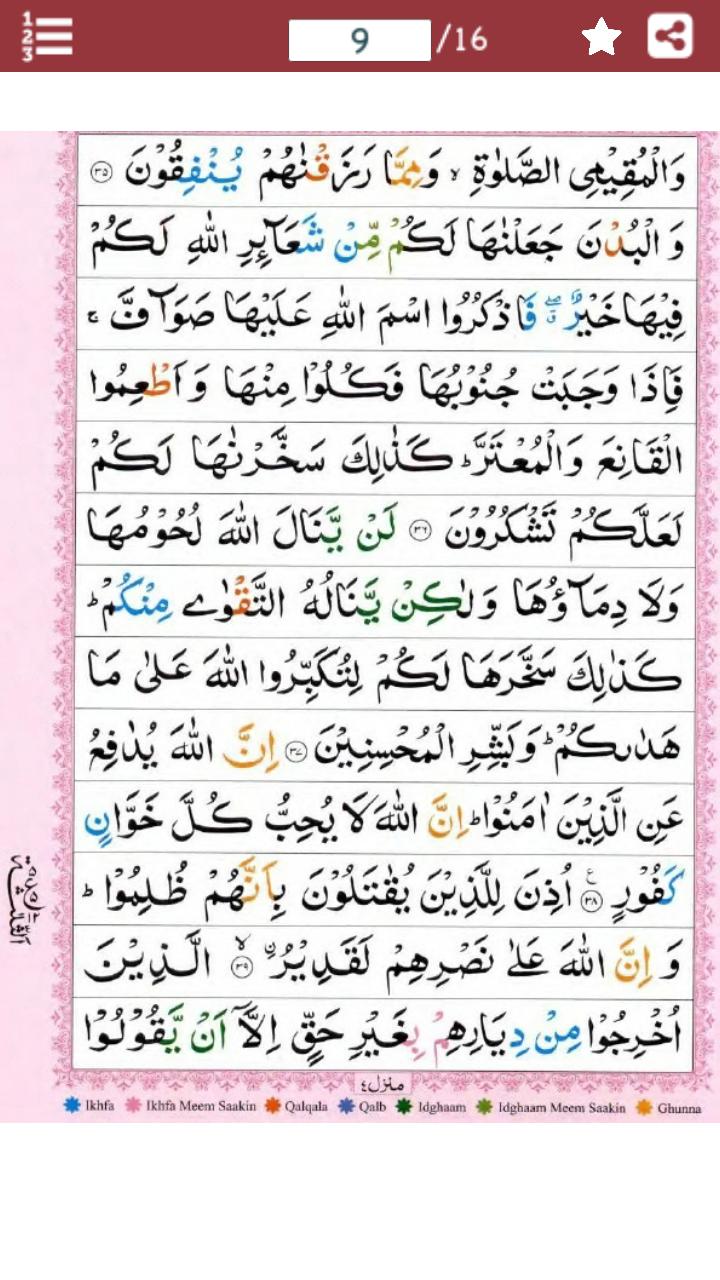 9 /16
وَالْمُقِيْمِى الصَّلٰوةِ ۙ وَمِمَّا رَزَقْنٰهُمْ يُنْفِقُوْنَ ﴿۳۵﴾
وَ الْبُدْنَ جَعَلْنٰهَا لَكُمْ مِّنْ شَعَآئِرِ اللّٰهِ لَكُمْ
فِيْهَا خَيْرٌ ۖۗ فَاذْكُرُوا اسْمَ اللّٰهِ عَلَيْهَا صَوَآفَّ ۚ
فَاِذَا وَجَبَتْ جُنُوْبُهَا فَكُلُوْا مِنْهَا وَ اَطْعِمُوا
الْقَانِعَ وَالْمُعْتَرَّ ؕ كَذٰلِكَ سَخَّرْنٰهَا لَكُمْ
لَعَلَّكُمْ تَشْكُرُوْنَ ﴿۳۶﴾ لَنْ يَّنَالَ اللّٰهَ لُحُوْمُهَا
وَلَا دِمَآؤُهَا وَلٰكِنْ يَّنَالُهُ التَّقْوٰى مِنْكُمْ ؕ
كَذٰلِكَ سَخَّرَهَا لَكُمْ لِتُكَبِّرُوا اللّٰهَ عَلٰى مَا
هَدٰٮكُمْ ؕ وَبَشِّرِ الْمُحْسِنِيْنَ ﴿۳۷﴾ اِنَّ اللّٰهَ يُدٰفِعُ
عَنِ الَّذِيْنَ اٰمَنُوْا ؕ اِنَّ اللّٰهَ لَا يُحِبُّ كُلَّ خَوَّانٍ
كَفُوْرٍ ﴿۳۸﴾ ع اُذِنَ لِلَّذِيْنَ يُقٰتَلُوْنَ بِاَنَّهُمْ ظُلِمُوْا ؕ
وَ اِنَّ اللّٰهَ عَلٰى نَصْرِهِمْ لَقَدِيْرُ ۨ ۙ ﴿۳۹﴾ الَّذِيْنَ
اُخْرِجُوْا مِنْ دِيَارِهِمْ بِغَيْرِ حَقٍّ اِلَّاۤ اَنْ يَّقُوْلُوْا
منزل٤
Ikhfa Ikhfa Meem Saakin Qalqala Qalb Idghaam Idghaam Meem Saakin Ghunna